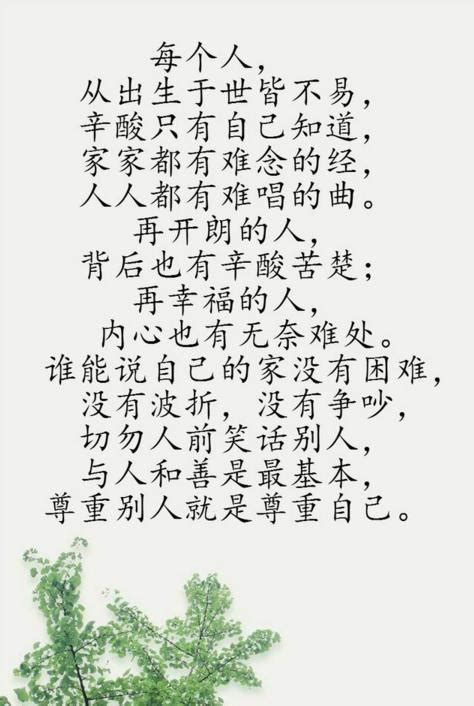 每个人，
从出生于世皆不易，
辛酸只有自己知道，
家家都有难念的经，
人人都有难唱的曲。
再开朗的人，
背后也有辛酸苦楚；
再幸福的人，
内心也有无奈难处。
谁能说自己的家没有困难，
没有波折，没有争吵，
切勿人前笑话别人，
与人和善是最基本，
尊重别人就是尊重自己。